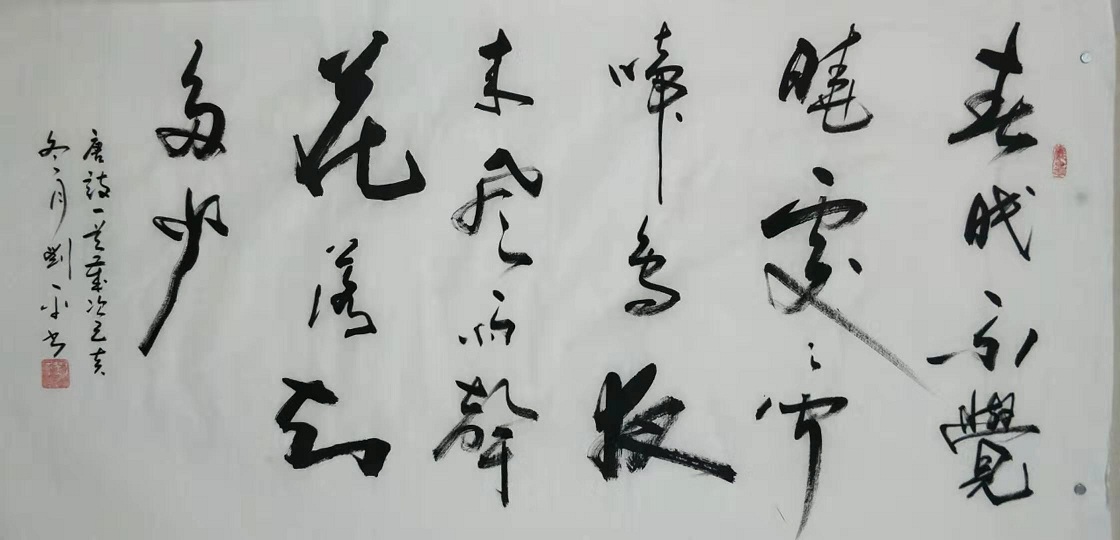 春眠不覺
曉處〻聞
啼鳥夜
來風雨聲
花落知
多少
唐詩一首歲次己亥
冬月劉平書